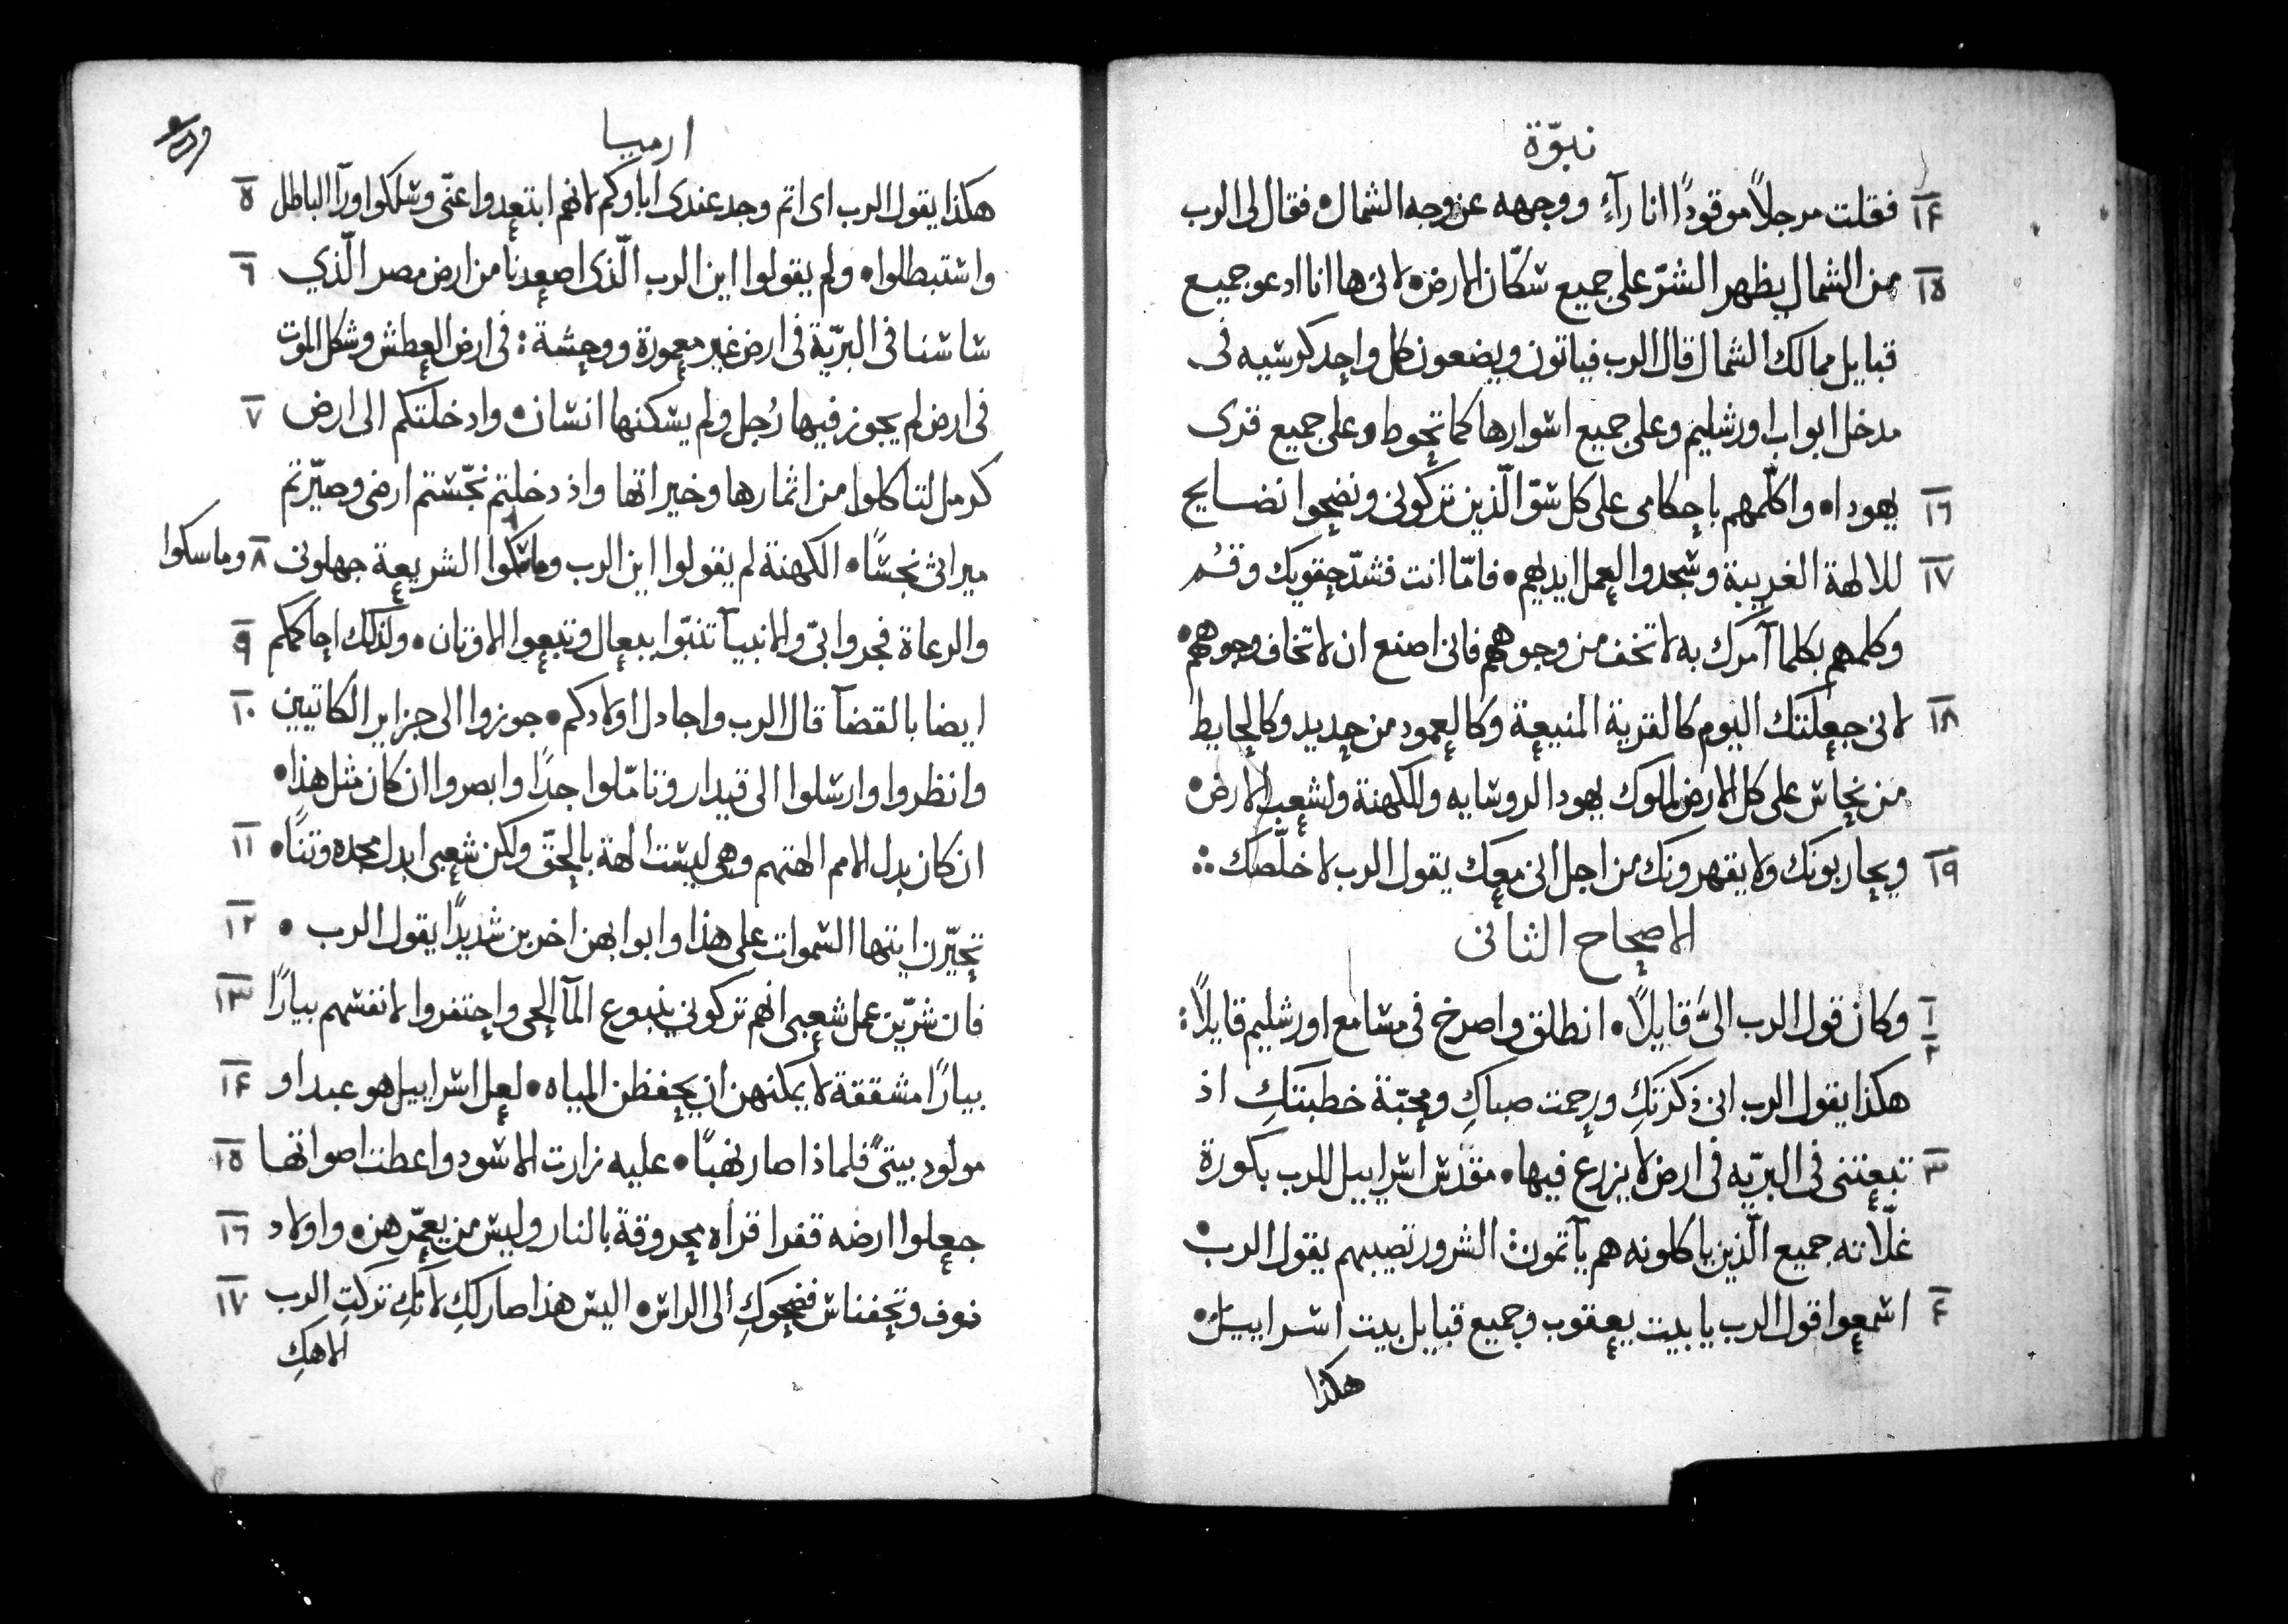 نبوّة
١٤ فقلت مرجلاً موقودًا انا رآءٍ ووجهه عن وجه الشمال • فقال لى الرب
١٥ من الشمال يظهر الشرّ على جميع سكّان الارض • لانى ها انا ادعو جميع
قبايل ممالك الشمال قال الرب فياتون ويضعون كل واحد كرسيه فى
مدخل ابواب اورشليم وعلى جميع اسوارها كما تحوط وعلى جميع قرى
١٦ يهودا • واكلّمهم باحكامى على كل سوّ الّذين تركونى ونضحوا نضايح
١٧ للالهة الغريبة وسجدوا لعمل ايديهم • فامّا انت فشدّ حقويك وقُم
وكلمهم بكلما آمرك به لا تخف من وجوههم فانى اصنع ان لا تخاف وجوههم •
١٨ لانى جعلتك اليوم كالقرية المنيعة وكالعمود من حديد وكالحايط
من نحاس على كل الارض لملوك يهودا لروسايه وللكهنة ولشعب الارض •
١٩ ويحاربونك ولا يقهرونك من اجل انى معك يقول الرب لاخلّصك ∴
الاصحاح الثانى
١ ٢ وكان قول الرب الىَّ قايلاً • انطلق واصرخ فى مسامع اورشليم قايلاً :
هكذا يقول الرب انى ذكرتكِ ورحمت صباكِ ومحبّة خطبتكِ اذ
٣ تبعتنى فى البريّه فى ارض لا يزرع فيها • مقدّس اسراييل للرب بكورة
غلّاته جميع الّذين ياكلونه هم يآتمون الشرور تصيبهم يقول الرب •
٤ اسمعوا قول الرب يا بيت يعقوب وجميع قبايل بيت اسراييل •
هكذا
ارميا
هكذا يقول الرب اى اثم وجد عندى اباوكم لانهم ابتعدوا عنّى وسلكوا ورآ الباطل ٥
واستبطلوا • ولم يقولوا اين الرب الّذى اصعدنا من ارض مصر الّذي ٦
ساسنا فى البريّة فى ارض غير معمورة ووحشة : فى ارض العطش وشكل الموت
فى ارض لم يجوز فيها رُجل ولم يسكنها انسان • وادخلتكم الى ارض ٧
كرمل لتاكلوا من اثمارها وخيراتها واذ دخلتم نجّستم ارضى وصيّرتم
ميراثى نجسًا • الكهنة لم يقولوا اين الرب وماسكوا الشريعة جهلونى ٨ وماسكوا
والرعاة فجروا بىّ والانبيآ تنبّوا ببعال وتبعوا الاوثان • ولذلك احاكمكم ٩
ايضا بالقضآ قال الرب واجادل اولادكم • جوزوا الى جزاير الكاتيين ١٠
وانظروا وارسلوا الى قيدار وتامّلوا جدًا وابصروا ان كان مثل هذا •
ان كان بدل الامم الهتهم وهى ليست الهة بالحقّ ولكن شعبى ابدل مجده وثنًا • ١١
تحيّرن ايتها السموات على هذا وابوابهن اخربن شديدًا يقول الرب • ١٢
فان شرّين عمل شعبى انهم تركوني ينبوع المآ الحى واحتفروا لانفسهم بيارًا ١٣
بيارًا مشققة لا يمكنهن ان يحفظن المياه • لعل اسراييل هو عبد او ١٤
مولود بيتىٍّ فلماذا صار نهبًا • عليه زارت الاسود واعطت اصواتها ١٥
جعلوا ارضه قفرا قراه محروقة بالنار وليس من يعمّرهن • واولاد ١٦
نوف وتحفناس فضحوكِ الى الراس • اليس هذا صار لكِ لانّكِ تركتِ الرب ١٧
الاهكِ